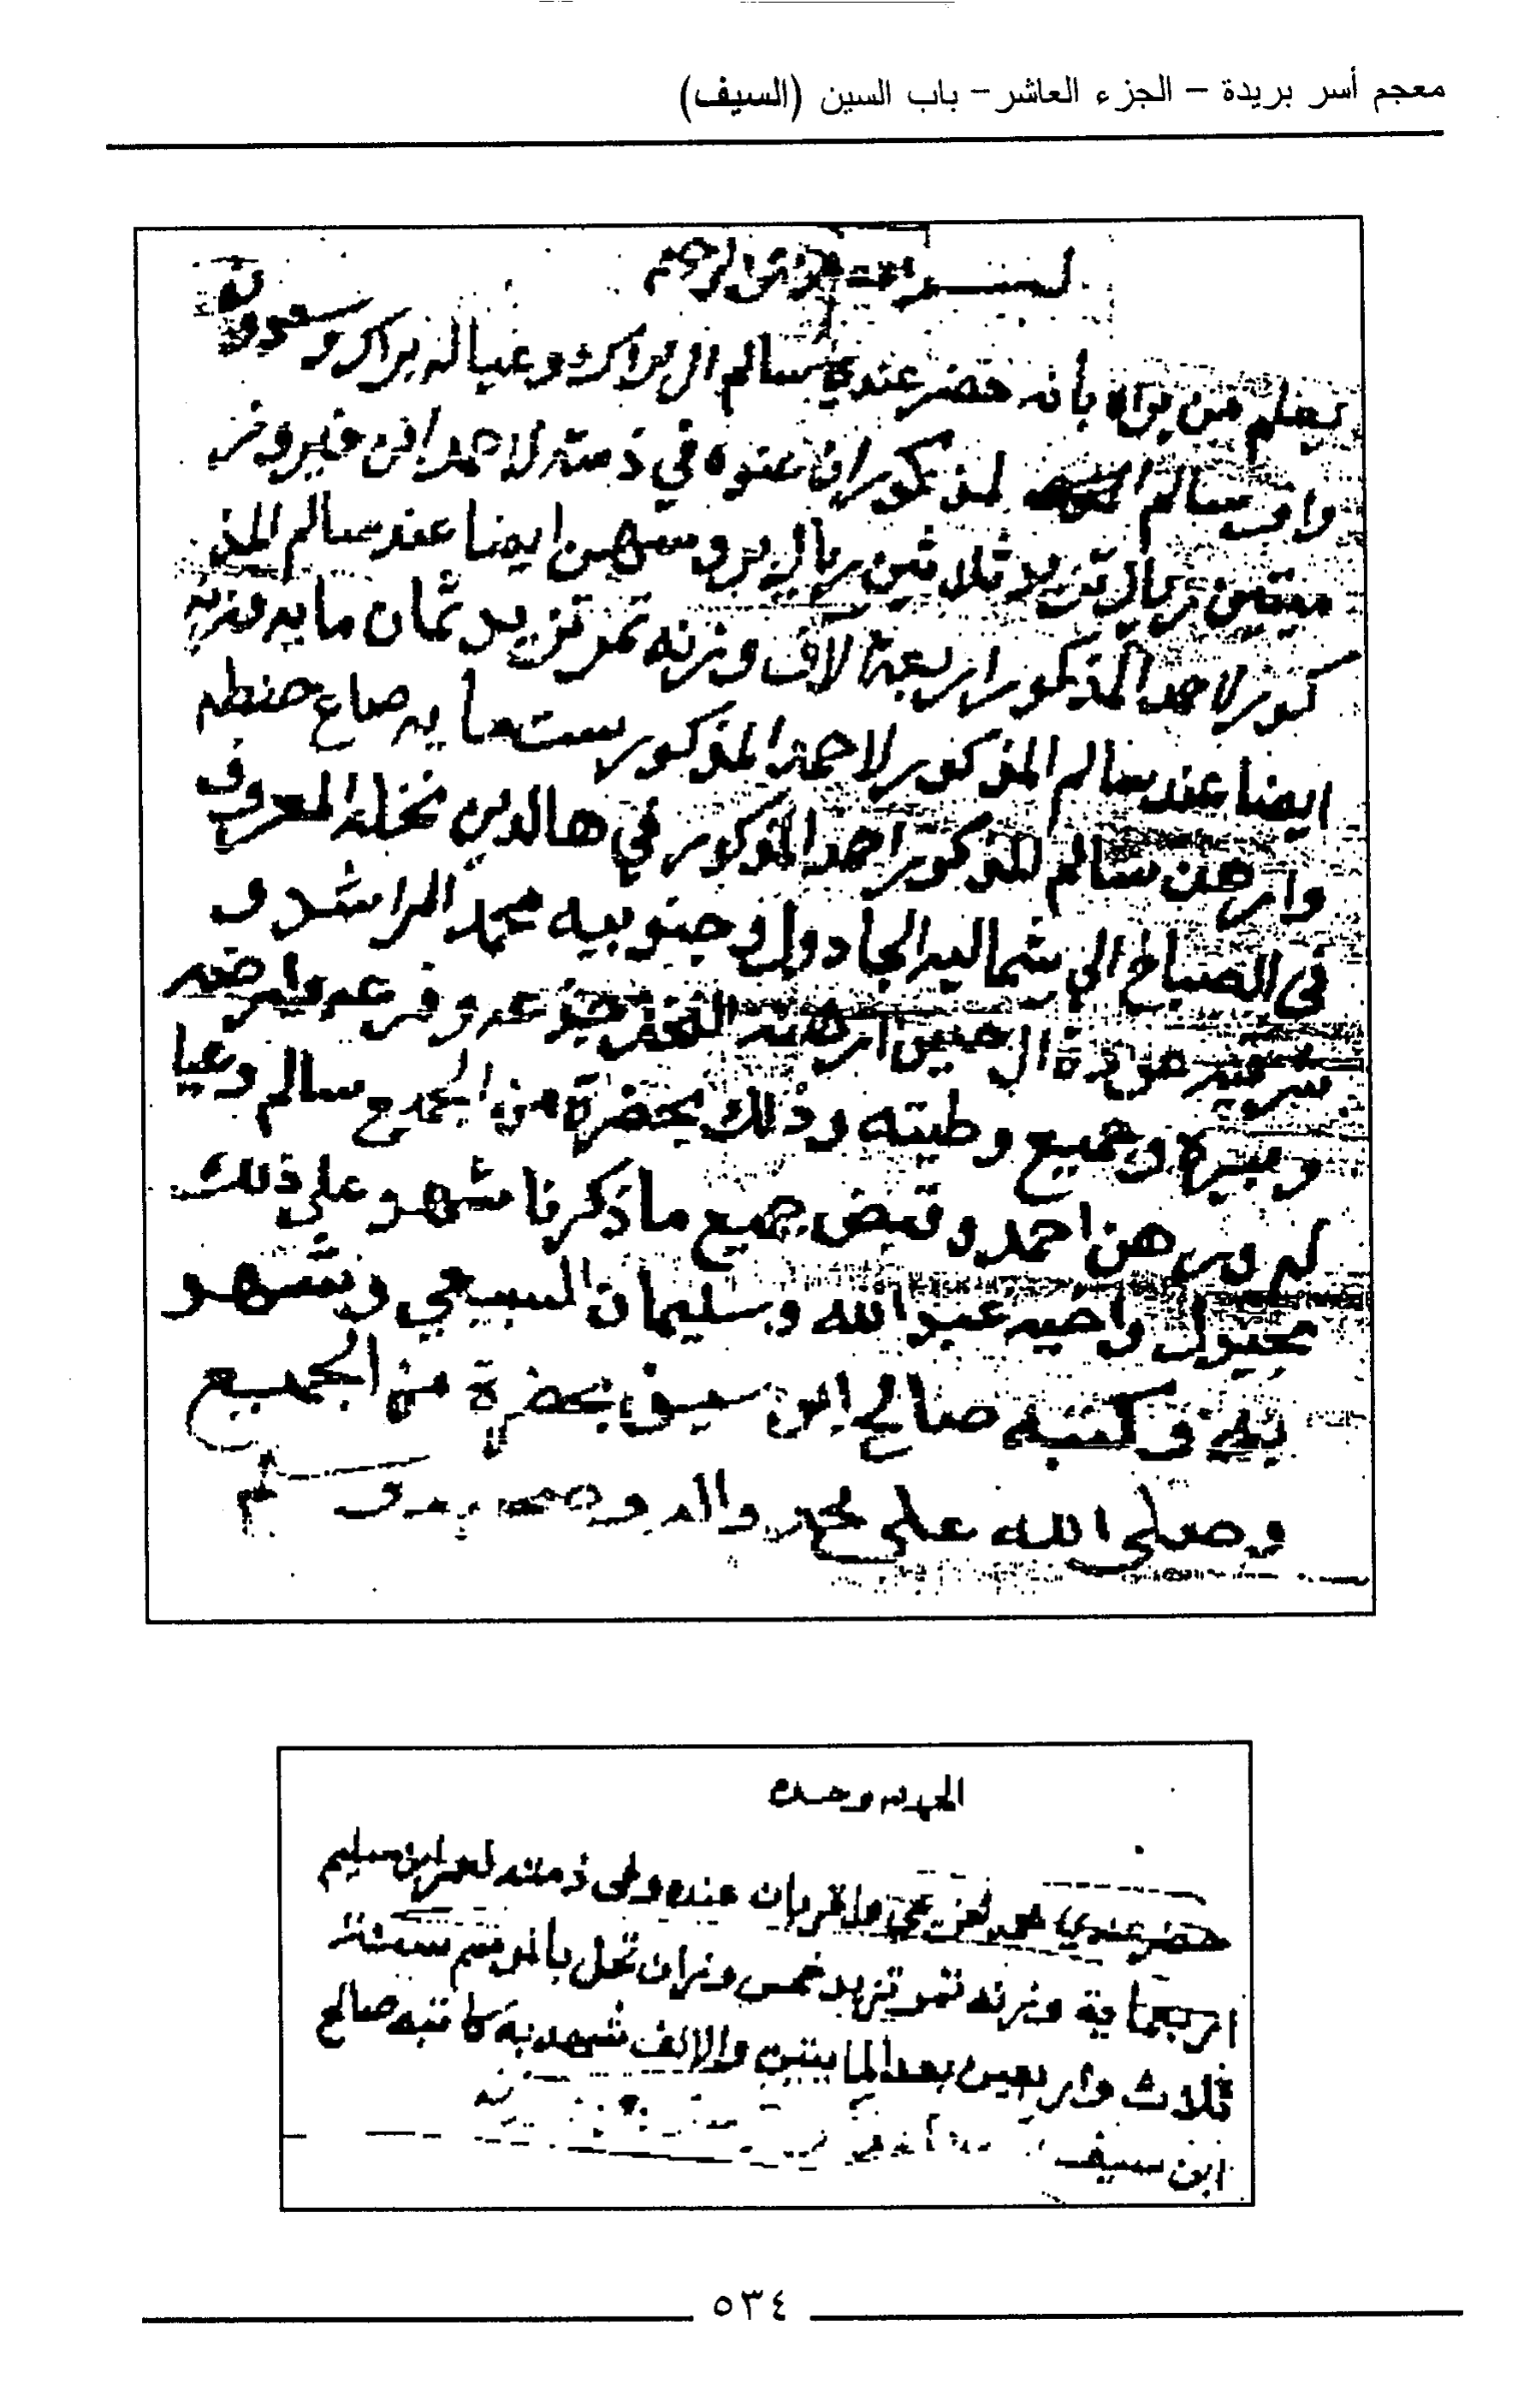 معجم أسر بريدة - الجزء العاشر - باب السين (السيف)
بسم الله الرحمن الرحيم
يعلم من يراه بأنه حضر عندي سالم ال براك وعياله براك وسعود
واقر سالم المذكور ان عنده في ذمته لاحمد ابن فيروز
ميتين ريال تزيد ثلاثين ريال بروسهن ايضا عند سالم المذ
كور لاحمد المذكور اربعة الآف وزنه تمر تزيد ثمان مايه وزنه
ايضا عند سالم المذكور لاحمد المذكور ست مايه صاع حنطه
وارهن سالم المذكور احمد المذكور في هالدين نخله المعروف
في الصباخ الي شماليه الجادول وجنوبيه محمد الراشد و
ال حسين ارهنه النخل جذعه وفرعه وارضه
وبيره وجميع وطيته وذلك بحضرة من الجميع سالم وعيا
له ورهن احمد وقبض جميع ما ذكرنا شهد على ذلك
واخيه عبد الله وسليمان السبيعي وشهد
به وكتبه صالح ابن سيف بحضرة من الجميع
وصلى الله على محمد واله وصحبه وسلم
الحمد لله وحده
حضر عندي واقر بان عنده وفي ذمته لعمر ابن سليم
اربعماية وزنة تمر تزيد خمس وزان تحل بالموسم سنة
ثلاث واربعين بعد المايتين والالف شهد به كاتبه صالح
ابن سيف
٥٣٤